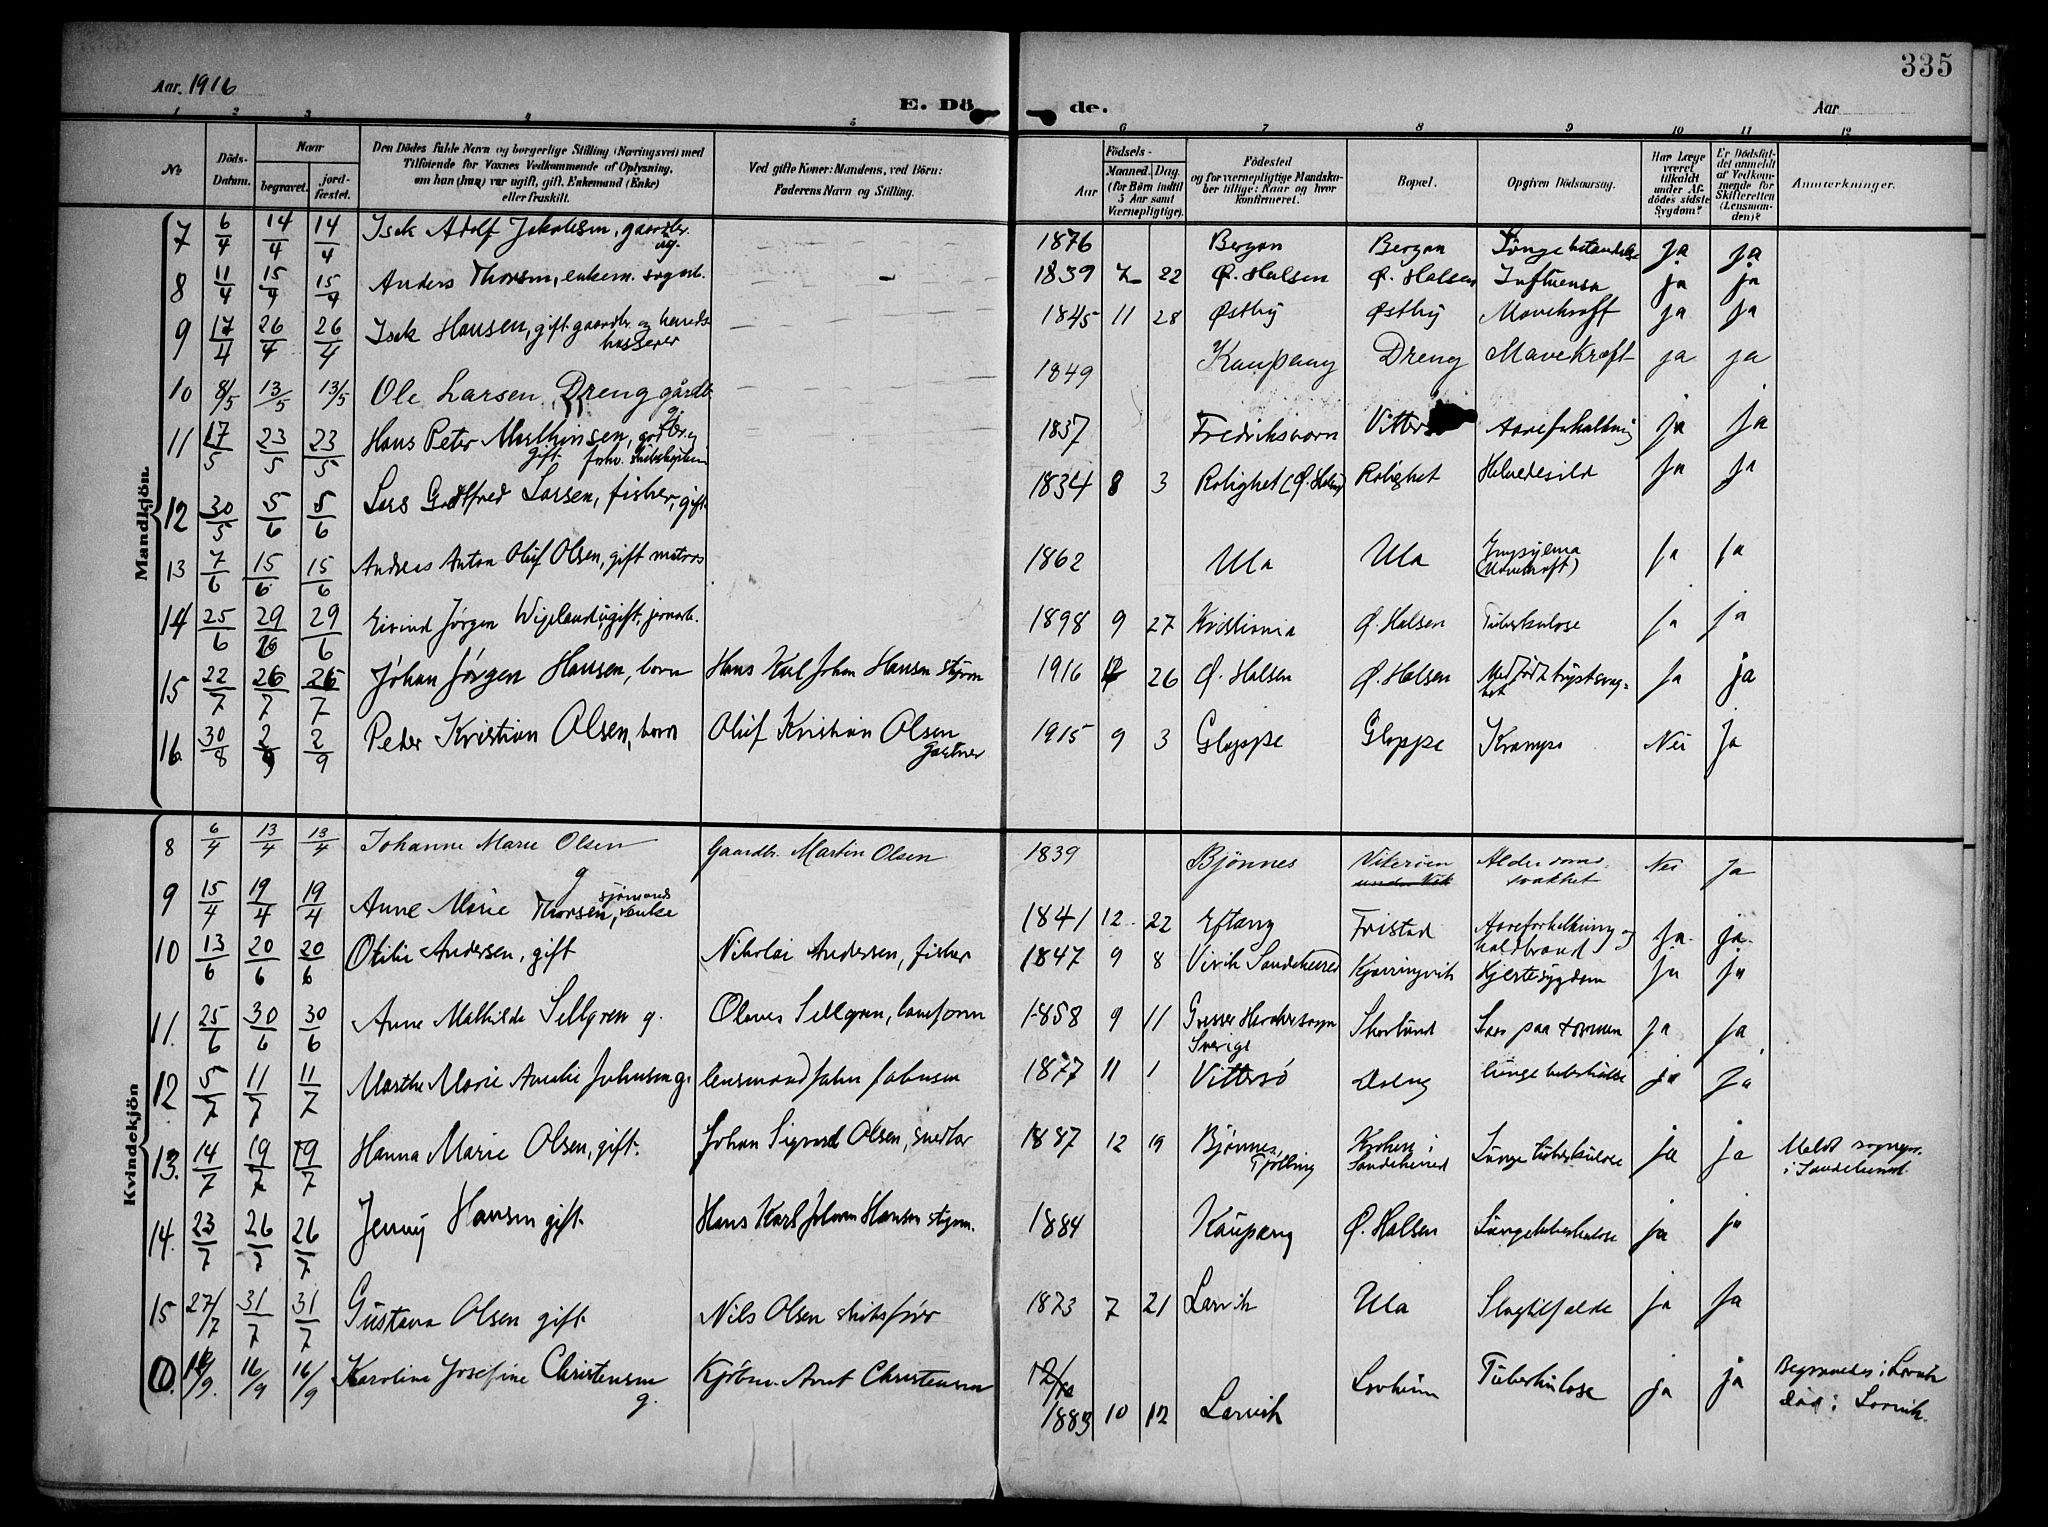 335
Aar. 1916
E. Dö de.
Aar
1 2 3 4 5 6 7 8 9 10 11 12
No
Döds-Datum.
Naar
begravet.
jord-fæstet.
Den Dödes fulde Navn og borgerlige Stilling (Næringsvei) med
Tilföiende for Voxnes Vedkommende af Oplysning,
om han (hun) var ugift, gift, Enkemand (Enke)
eller fraskilt.
Ved gifte Koner: Mandens, ved Börn:
Faderens Navn og Stilling.
Födsels-
Aar
Maaned. Dag.
(for Börn indtil
5 Aar samt
Værnepligtige).
Födested
og for værnepligtige Mandska-
ber tillige: Naar og hvor
konfirmeret.
Bopæl.
Opgiven Dödsaarsag.
Har Læge
været
tilkaldt
under Af-
dödes sidste
Sygdom?
Er Dödsfal-
det anmeldt
af Vedkom-
mende for
Skifteretten
(Lensman-
den)?
Anmærkninger.
Mandkjön.
7 6/4 14/4 14/4 Isak Adolf Jakobsen, gaardbr. ug. 1876 Bergan Bergan Lungebetændelse ja ja
8 11/4 15/4 15/4 Anders Thorsen, enkem. 1839 7 22 Ø. Halsen Ø. Halsen Influensa ja ja
9 17/4 26/4 26/4 Isak Hansen, gift gaardbr. og herreds kasserer 1845 11 28 Østby Østby Mavekræft ja ja
10 8/5 13/5 13/5 Ole Larsen, Dreng gårdb. g. 1849 Kaupang Dreng Mavekræft ja ja
11 17/5 23/5 23/5 Hans Peter Mathisen, gift 1837 Fredriksværn Aareforkalkning ja ja
12 30/5 5/6 5/6 Lars Godtfred Larsen, fisker, gift. 1834 8 3 Rolighet (Ø. Halsen) Rolighet Helvedesild ja ja
13 7/6 15/6 15/6 Andreas Anton Oluf Olsen, gift matros 1862 Ula Ula Empyema (Mavekræft) ja ja
14 25/6 29/6 29/6 Eivind Jørgen Wigeland, ugift, jernarb. 1898 9 27 Kristiania Ø. Halsen Tuberkulose ja ja
15 22/7 26/7 26/7 Johan Jørgen Hansen, barn Hans Karl Johan Hansen styrm 1916 26 Ø. Halsen Ø. Halsen ja ja
16. 30/8 2/9 2/9 Peder Kristian Olsen, barn Oluf Kristian Olsen Gartner 1915 9 3 Gloppe Gloppe Krampe Nei Ja
Kvindekjön
8 6/4 13/4 13/4 Johanne Marie Olsen g Gaardbr. Martin Olsen 1839 Bjønnes Vikerøen Alderdomssvakhet Nei Ja
9 15/4 19/4 19/4 Anne Marie Thorsen, sjømands enke 1841 12 22 Eftang Fristad Aareforkalkning og koldbrand ja ja
10 13/6 20/6 20/6 Otilie Andersen, gift Nikolai Andersen, fisker 1847 9 8 Virik Sandeherred Kjærringvik Hjertesygdom ja ja
11. 25/6 30/6 30/6 Anne Mathilde Sellgren g. Olaves Sellgren, 1858 9 11 Sverige Skorlund Saar paa tarmen ja ja
12 5/7 11/7 11/7 Marthe Marie Amalie Johnsen g. lensmand John Johnsen 1877 11 1 Vittersø Lungetuberkulose ja ja
13. 14/7 19/7 19/7 Hanna Marie Olsen, gift. Johan Sigvard Olsen, snedker 1887 12 19 Bjønnes, Tjølling Kroken i Sandeherred Lungetuberkulose ja ja Meldt sognepr. i Sandeherred
14. 23/7 26/7 26/7 Jenny Hansen gift. Hans Karl Johan Hansen styrm. 1884 Kaupang Ø. Halsen Lungetuberkulose ja ja
15 27/7 31/7 31/7 Gustava Olsen gift. Nils Olsen skibsfører 1873 7 21 Larvik Ula Slagtilfælde ja ja
16/9 16/9 Karoline Josefine Christensen g. Kjøbm. Arnt Christensen 1883 10 12 Larvik Tuberkulose ja ja Begravedes i Larvik død i Larvik.